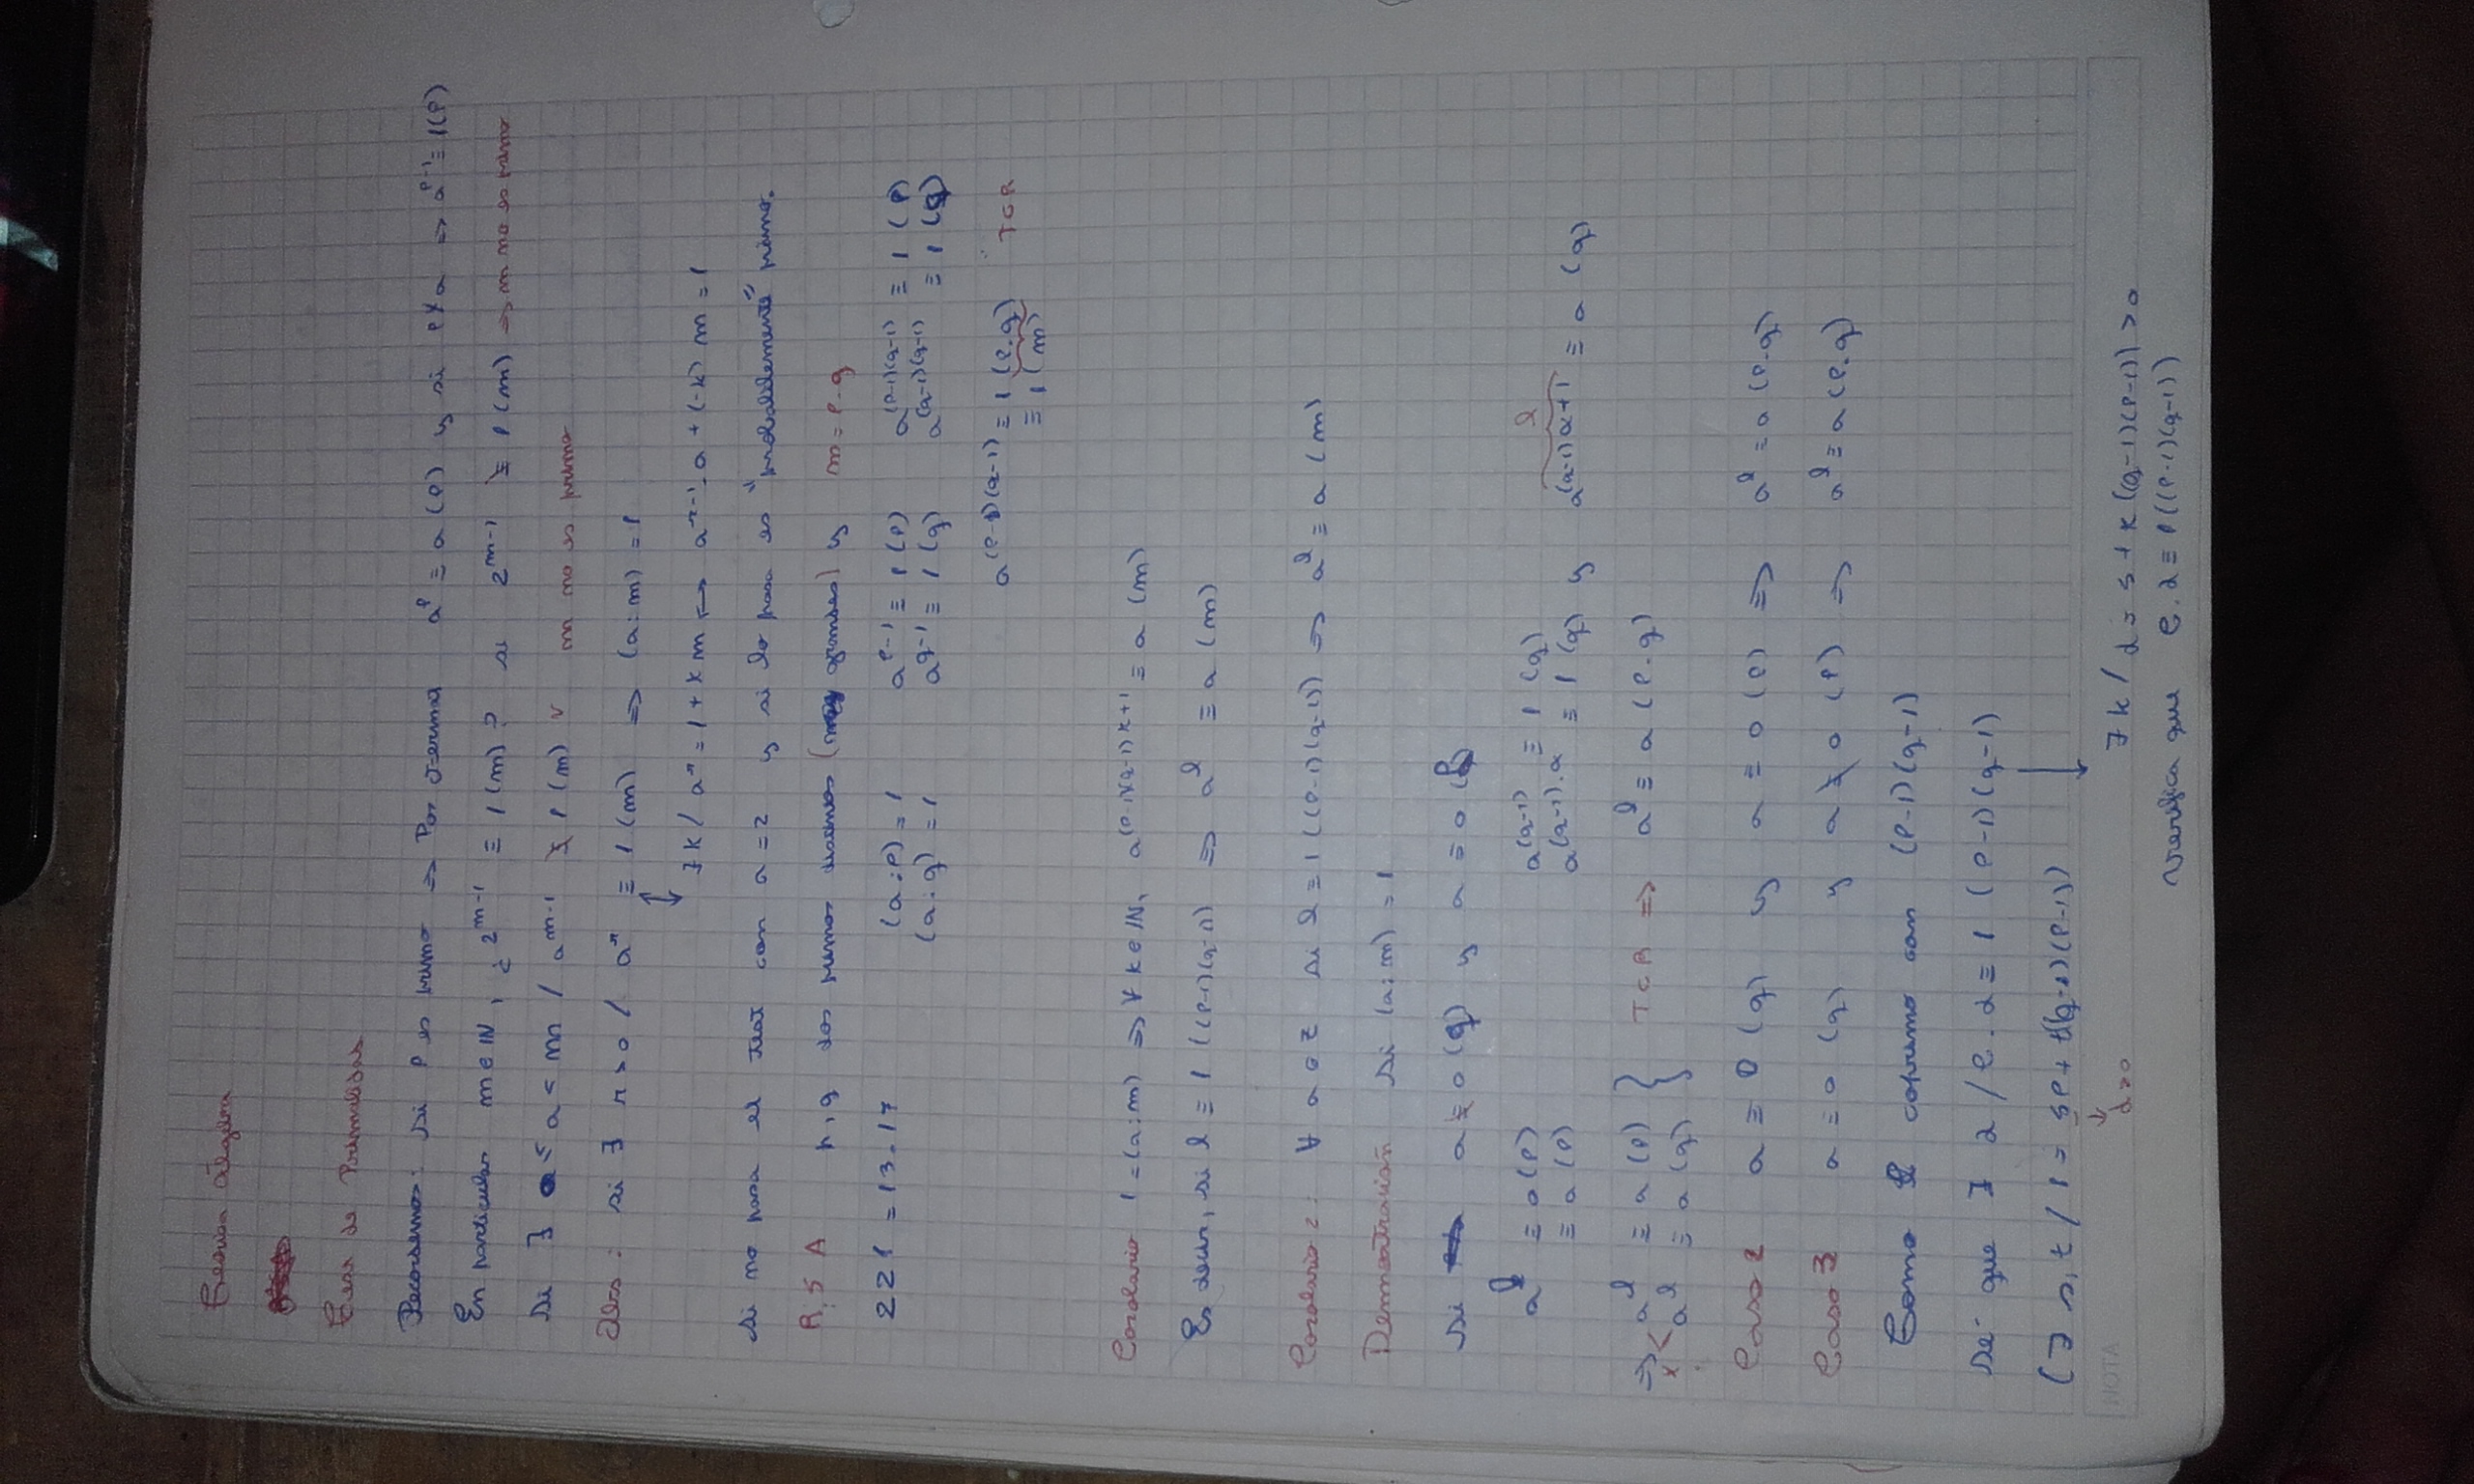 Teorica Algebra
Test de Primalidad
Recordemos: Si P es primo ⇒ Por Fermat a^P ≡ a (P) y si P∤a ⇒ a^(P-1) ≡ 1(P)
En particular m ∈ IN, ¿ 2^(m-1) ≡ 1 (m)? si 2^(m-1) ≢ 1 (m) ⇒ m no es primo
Si ∃ 0 < a < m / a^(m-1) ≢ 1 (m) m no es primo
Obs: si ∃ r > 0 / a^r ≡ 1 (m) ⇒ (a:m) = 1
↕
∃ k / a^r = 1 + k m ↔ a^(r-1) . a + (-k) m = 1
Si no pasa el test con a = 2 y si lo pasa es "probablemente" primo.
R.S A p, q dos primos distintos (muy grandes) y m = P.q
221 = 13.17 (a:P) = 1 a^(P-1) ≡ 1 (P) a^((P-1)(q-1)) ≡ 1 (P)
(a:q) = 1 a^(q-1) ≡ 1 (q) a^((q-1)(q-1)) ≡ 1 (q)
a^((P-1)(q-1)) ≡ 1 (P.q) TCR
≡ 1 (m)
Corolario 1 = (a:m) ⇒ ∀ k ∈ IN, a^((P-1)(q-1)k+1) ≡ a (m)
Es decir, si l ≡ 1 ((P-1)(q-1)) ⇒ a^l ≡ a (m)
Corolario 2: ∀ a ∈ Z si l ≡ 1 ((P-1)(q-1)) ⇒ a^l ≡ a (m)
Demostración Si (a:m) = 1
Si a ≢ 0 (q) y a ≡ 0 (P)
l
a^l ≡ 0 (P) a^(q-1) ≡ 1 (q)
≡ a (P) a^((q-1).α) ≡ 1 (q) y a^((q-1)α+1) ≡ a (q)
⇒ a^l ≡ a (P) } TCR ⇒ a^l ≡ a (P.q)
* a^l ≡ a (q)
Caso 2 a ≡ 0 (q) y a ≡ 0 (P) ⇒ a^l ≡ a (P.q)
Caso 3 a ≡ 0 (q) y a ≢ 0 (P) ⇒ a^l ≡ a (P.q)
Tomo e coprimo con (P-1)(q-1)
Sé que ∃ d / e.d ≡ 1 (P-1)(q-1)
(∃ s, t / 1 = se + t(q-1)(P-1))
↓
d>0
∃ k / d = s + k((q-1)(P-1)) > 0
Verifica que e.d ≡ 1 ((P-1)(q-1))
NOTA